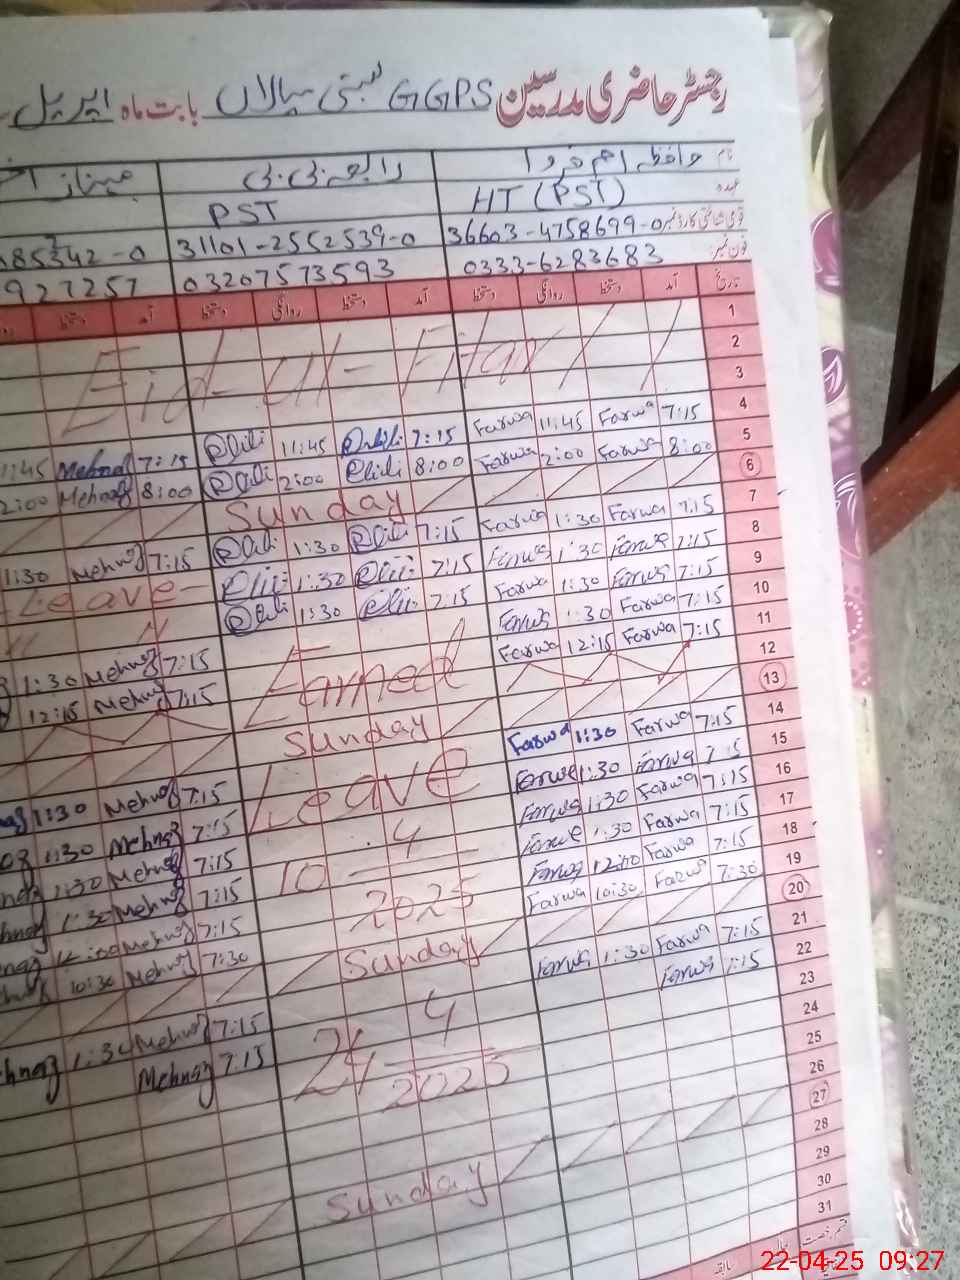 رجسٹر حاضری مدرسین GGPS بستی سیالاں بابت ماہ اپریل
نام حافظہ ام فروا رابعہ بی بی مہناز
عہدہ HT (PST) PST
قومی شناختی کارڈ نمبر 36603-4758699-0 31101-2552539-0 085342-0
فون نمبر: 0333-6283683 03207573593 927257
تاریخ آمد دستخط روانگی دستخط آمد دستخط روانگی دستخط آمد دستخط
1
2 Eid-Ul-Fitar
3
4 7:15 Farwa 11:45 Farwa 7:15 11:45 7:15 Mehnaz 11:45
5 8:00 Farwa 2:00 Farwa 8:00 2:00 8:00 Mehnaz 2:00
6 Sunday
7 7:15 Farwa 1:30 Farwa 7:15 1:30 7:15 Mehnaz 1:30
8 7:15 Farwa 1:30 Farwa 7:15 1:30 Leave
9 7:15 Farwa 1:30 Farwa 7:15 1:30 " "
10 7:15 Farwa 1:30 Farwa Earned 7:15 Mehnaz 1:30
11 7:15 Farwa 12:15 Farwa 7:15 Mehnaz 12:15
12
13 Sunday
14 7:15 Farwa 1:30 Farwa Leave 7:15 Mehnaz 1:30
15 7:15 Farwa 1:30 Farwa 7:15 Mehnaz 1:30
16 7:15 Farwa 1:30 Farwa 10.4/2025 7:15 Mehnaz 1:30
17 7:15 Farwa 1:30 Farwa 7:15 Mehnaz 1:30
18 7:15 Farwa 12:00 Farwa 7:15 Mehnaz 12:00
19 7:30 Farwa 10:30 Farwa 7:30 Mehnaz 10:30
20 Sunday
21 7:15 Farwa 1:30 Farwa 7:15 Mehnaz 1:30
22 7:15 Farwa 24 4/2025 7:15 Mehnaz
23
24
25
26
27 Sunday
28
29
30
31
قسم رخصت
سابقہ
22-04-25 09:27